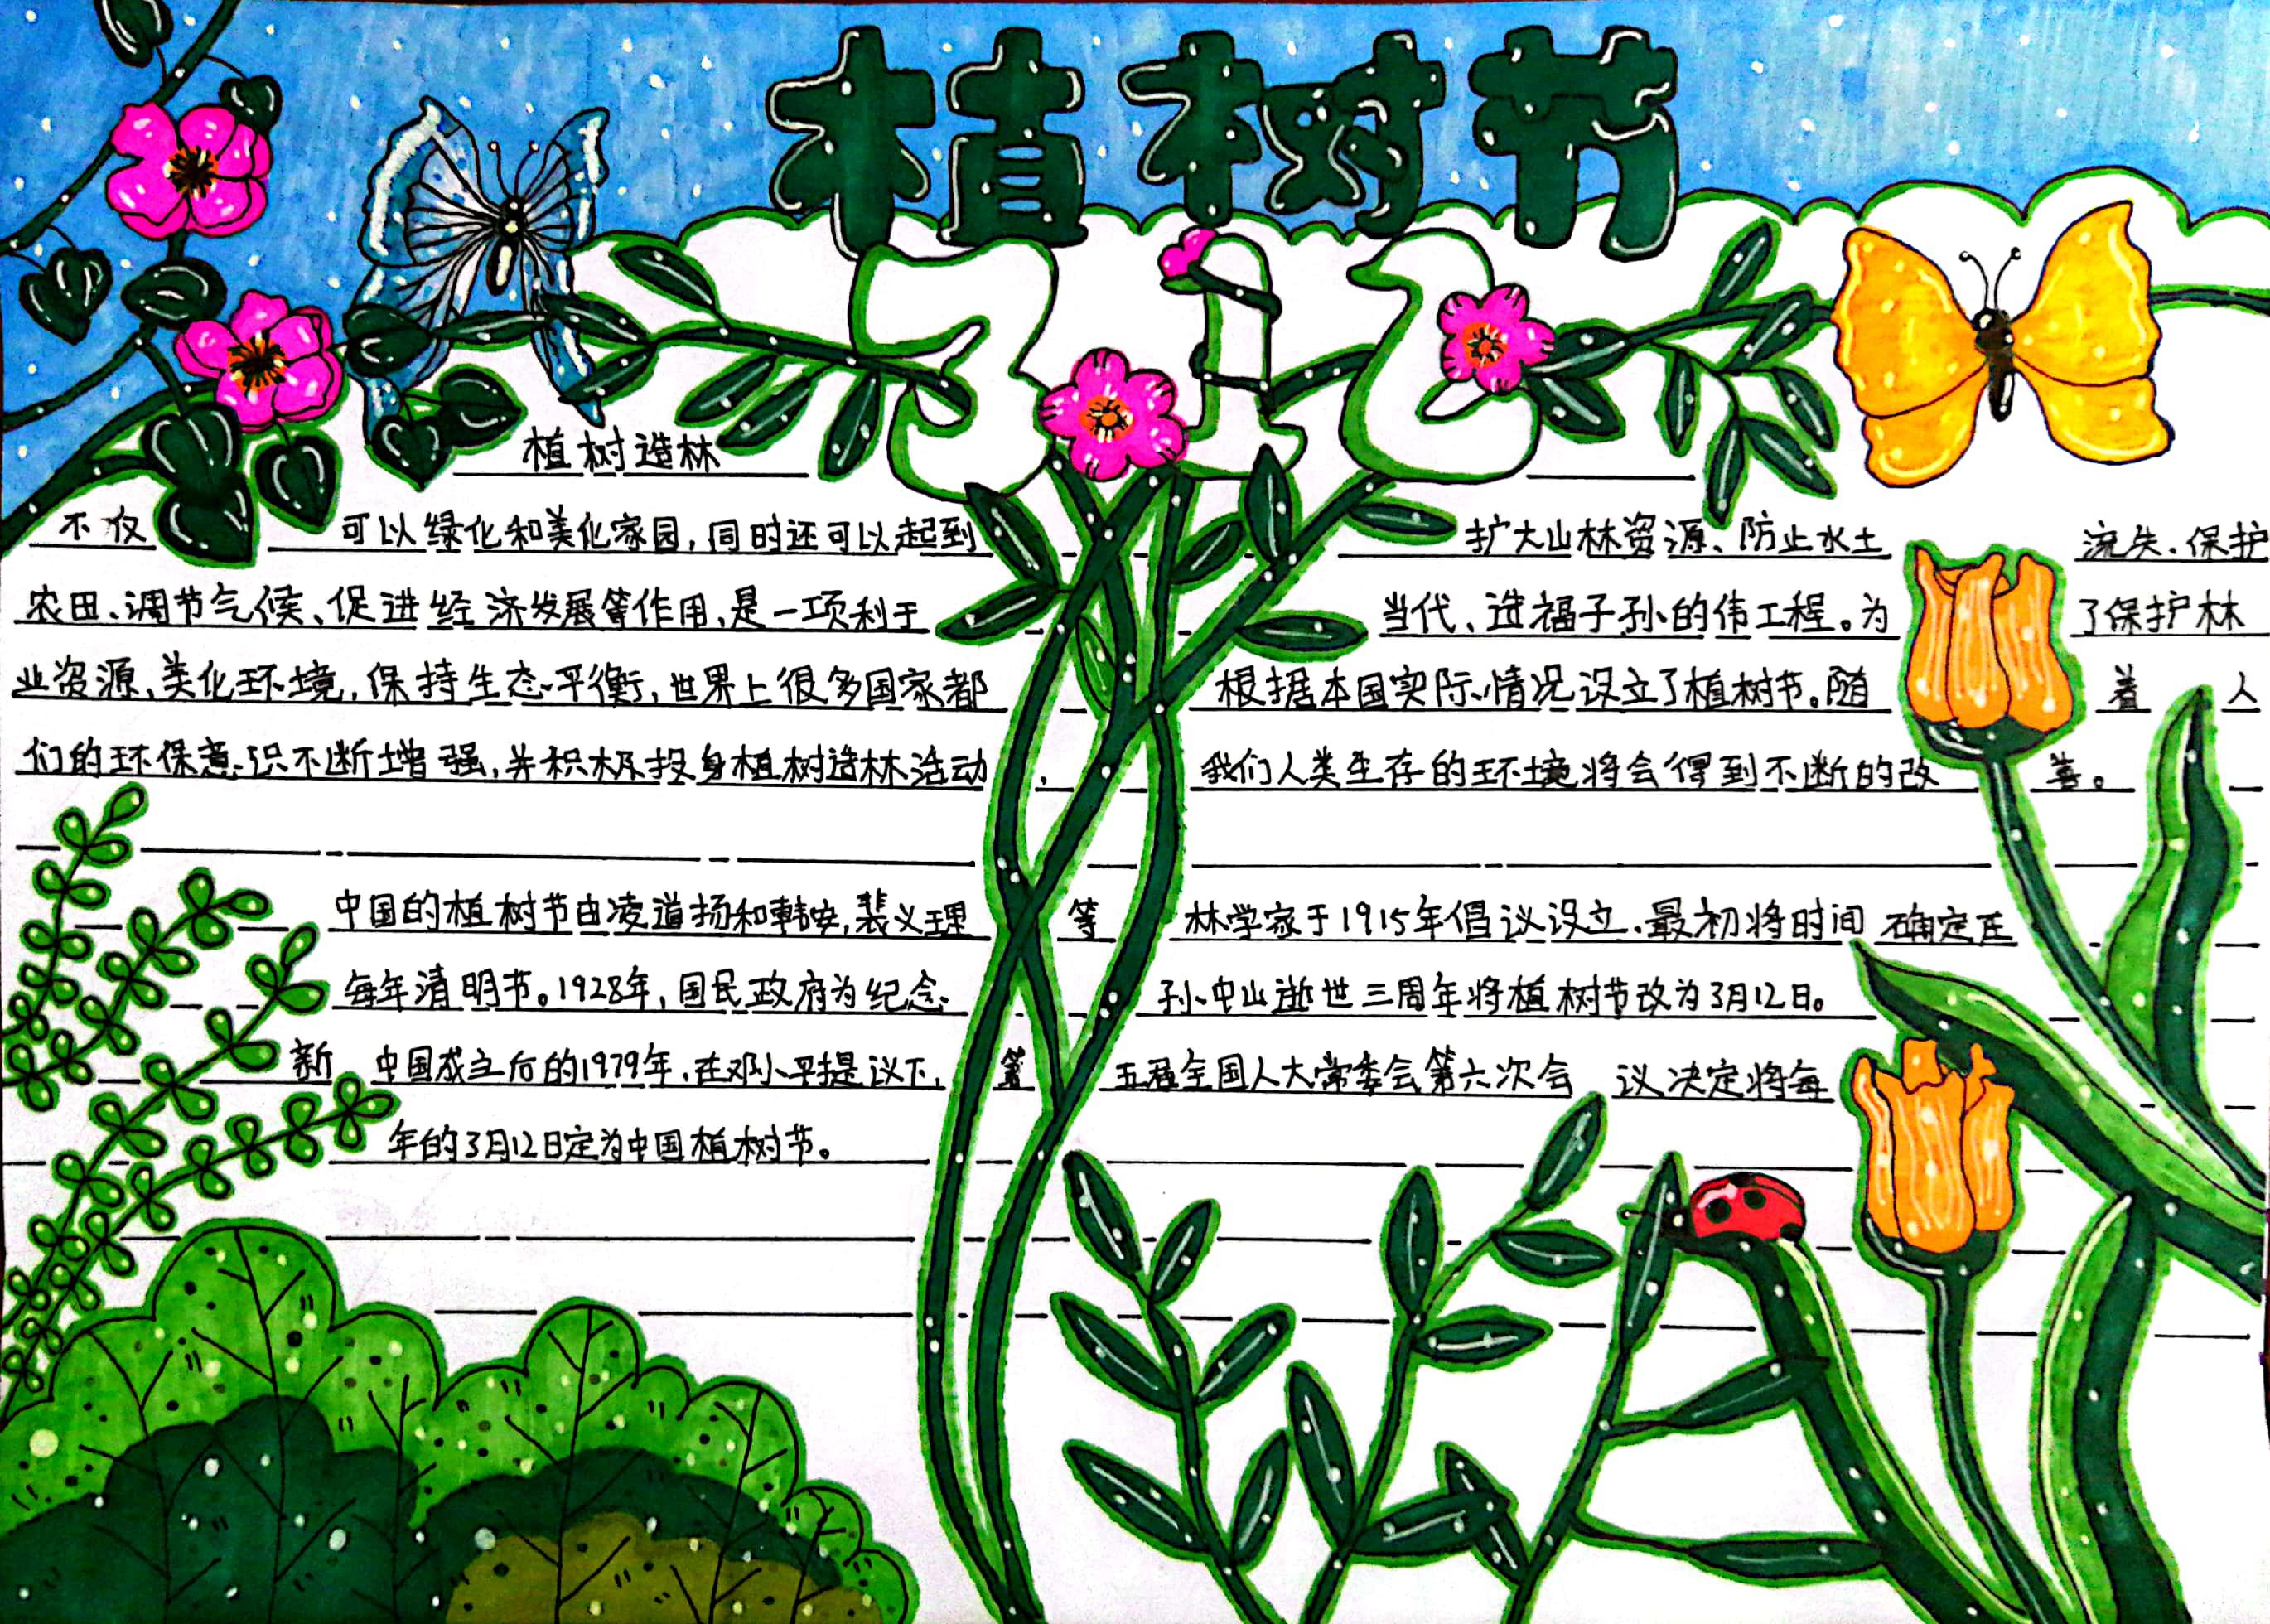 植树节
312
植树造林
不仅可以绿化和美化家园,同时还可以起到扩大山林资源、防止水土流失、保护
农田、调节气候、促进经济发展等作用,是一项利于当代、造福子孙的伟工程。为了保护林
业资源、美化环境,保持生态平衡,世界上很多国家都根据本国实际情况设立了植树节。随着人
们的环保意识不断增强,并积极投身植树造林活动,我们人类生存的环境将会得到不断的改善。
中国的植树节由凌道扬和韩安,裴义理等林学家于1915年倡议设立.最初将时间确定在
每年清明节。1928年,国民政府为纪念孙中山逝世三周年将植树节改为3月12日。
新中国成立后的1979年,在邓小平提议下,第五届全国人大常委会第六次会议决定将每
年的3月12日定为中国植树节。